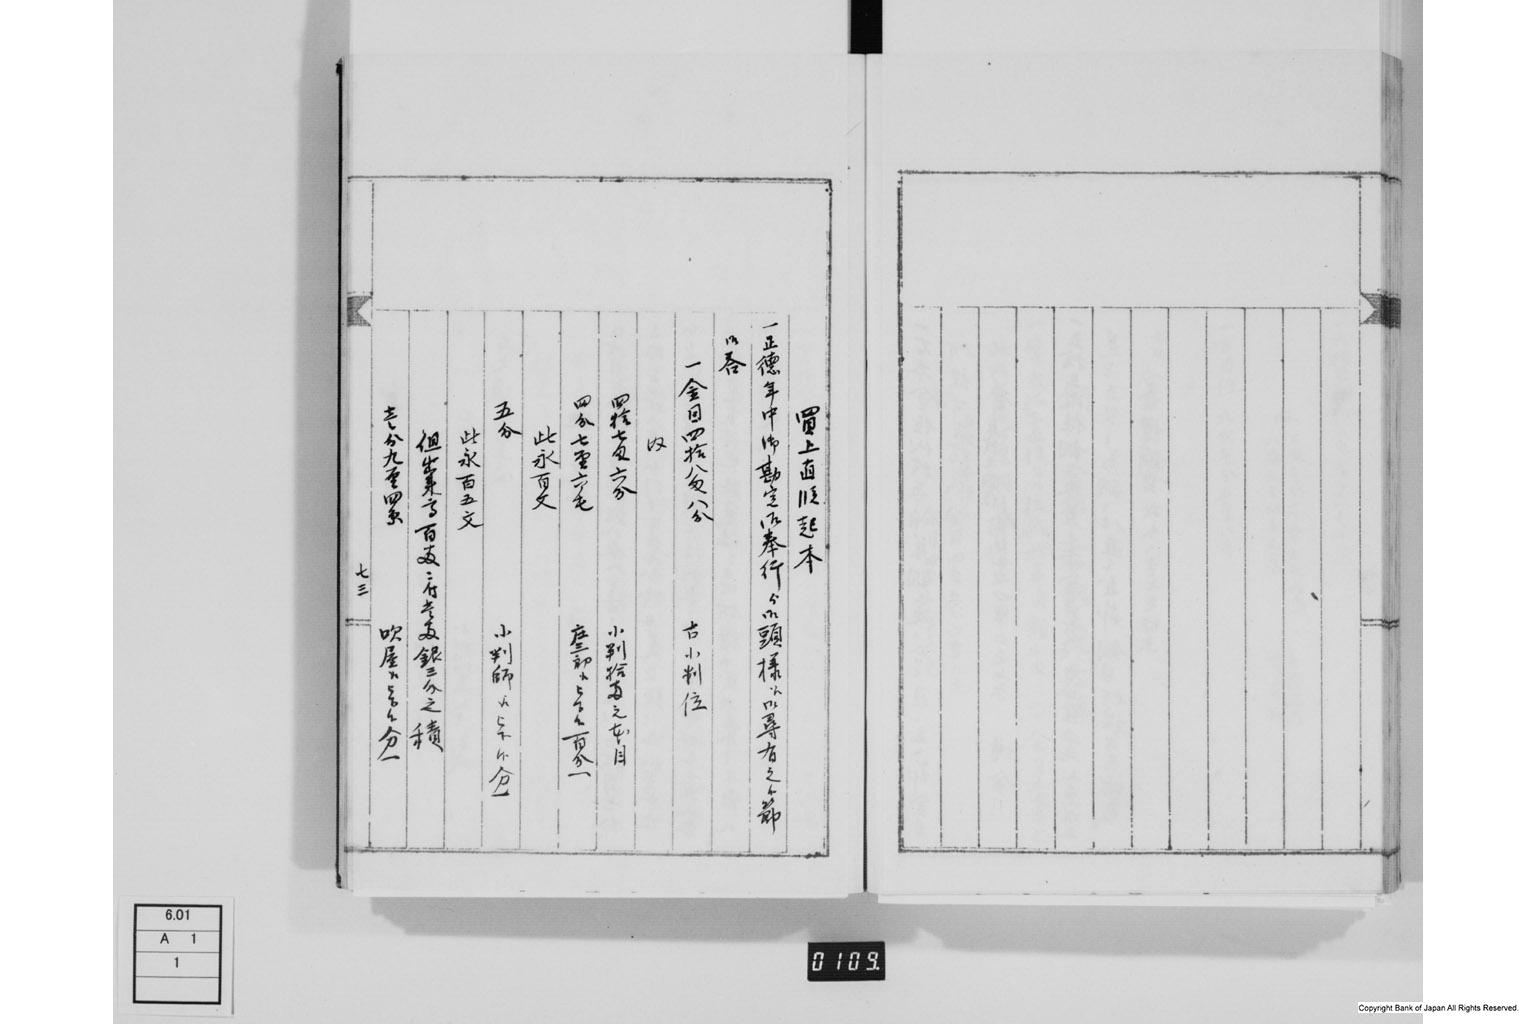 買上直段起本
一正徳年中御勘定御奉行ゟ御頭様江御尋有之候節
御答
一金目四拾八匁八分 古小判位
内
四拾七匁六分 小判拾両之本目
四分七厘六毛 座初
此永百文
五分 小判師
此永百五文
但出来高百両ニ付壱両銀三分之積
壱分九厘四糸 吹屋
七三
6.01
A 1
1
0109.
Copyright Bank of Japan All Rights Reserved.